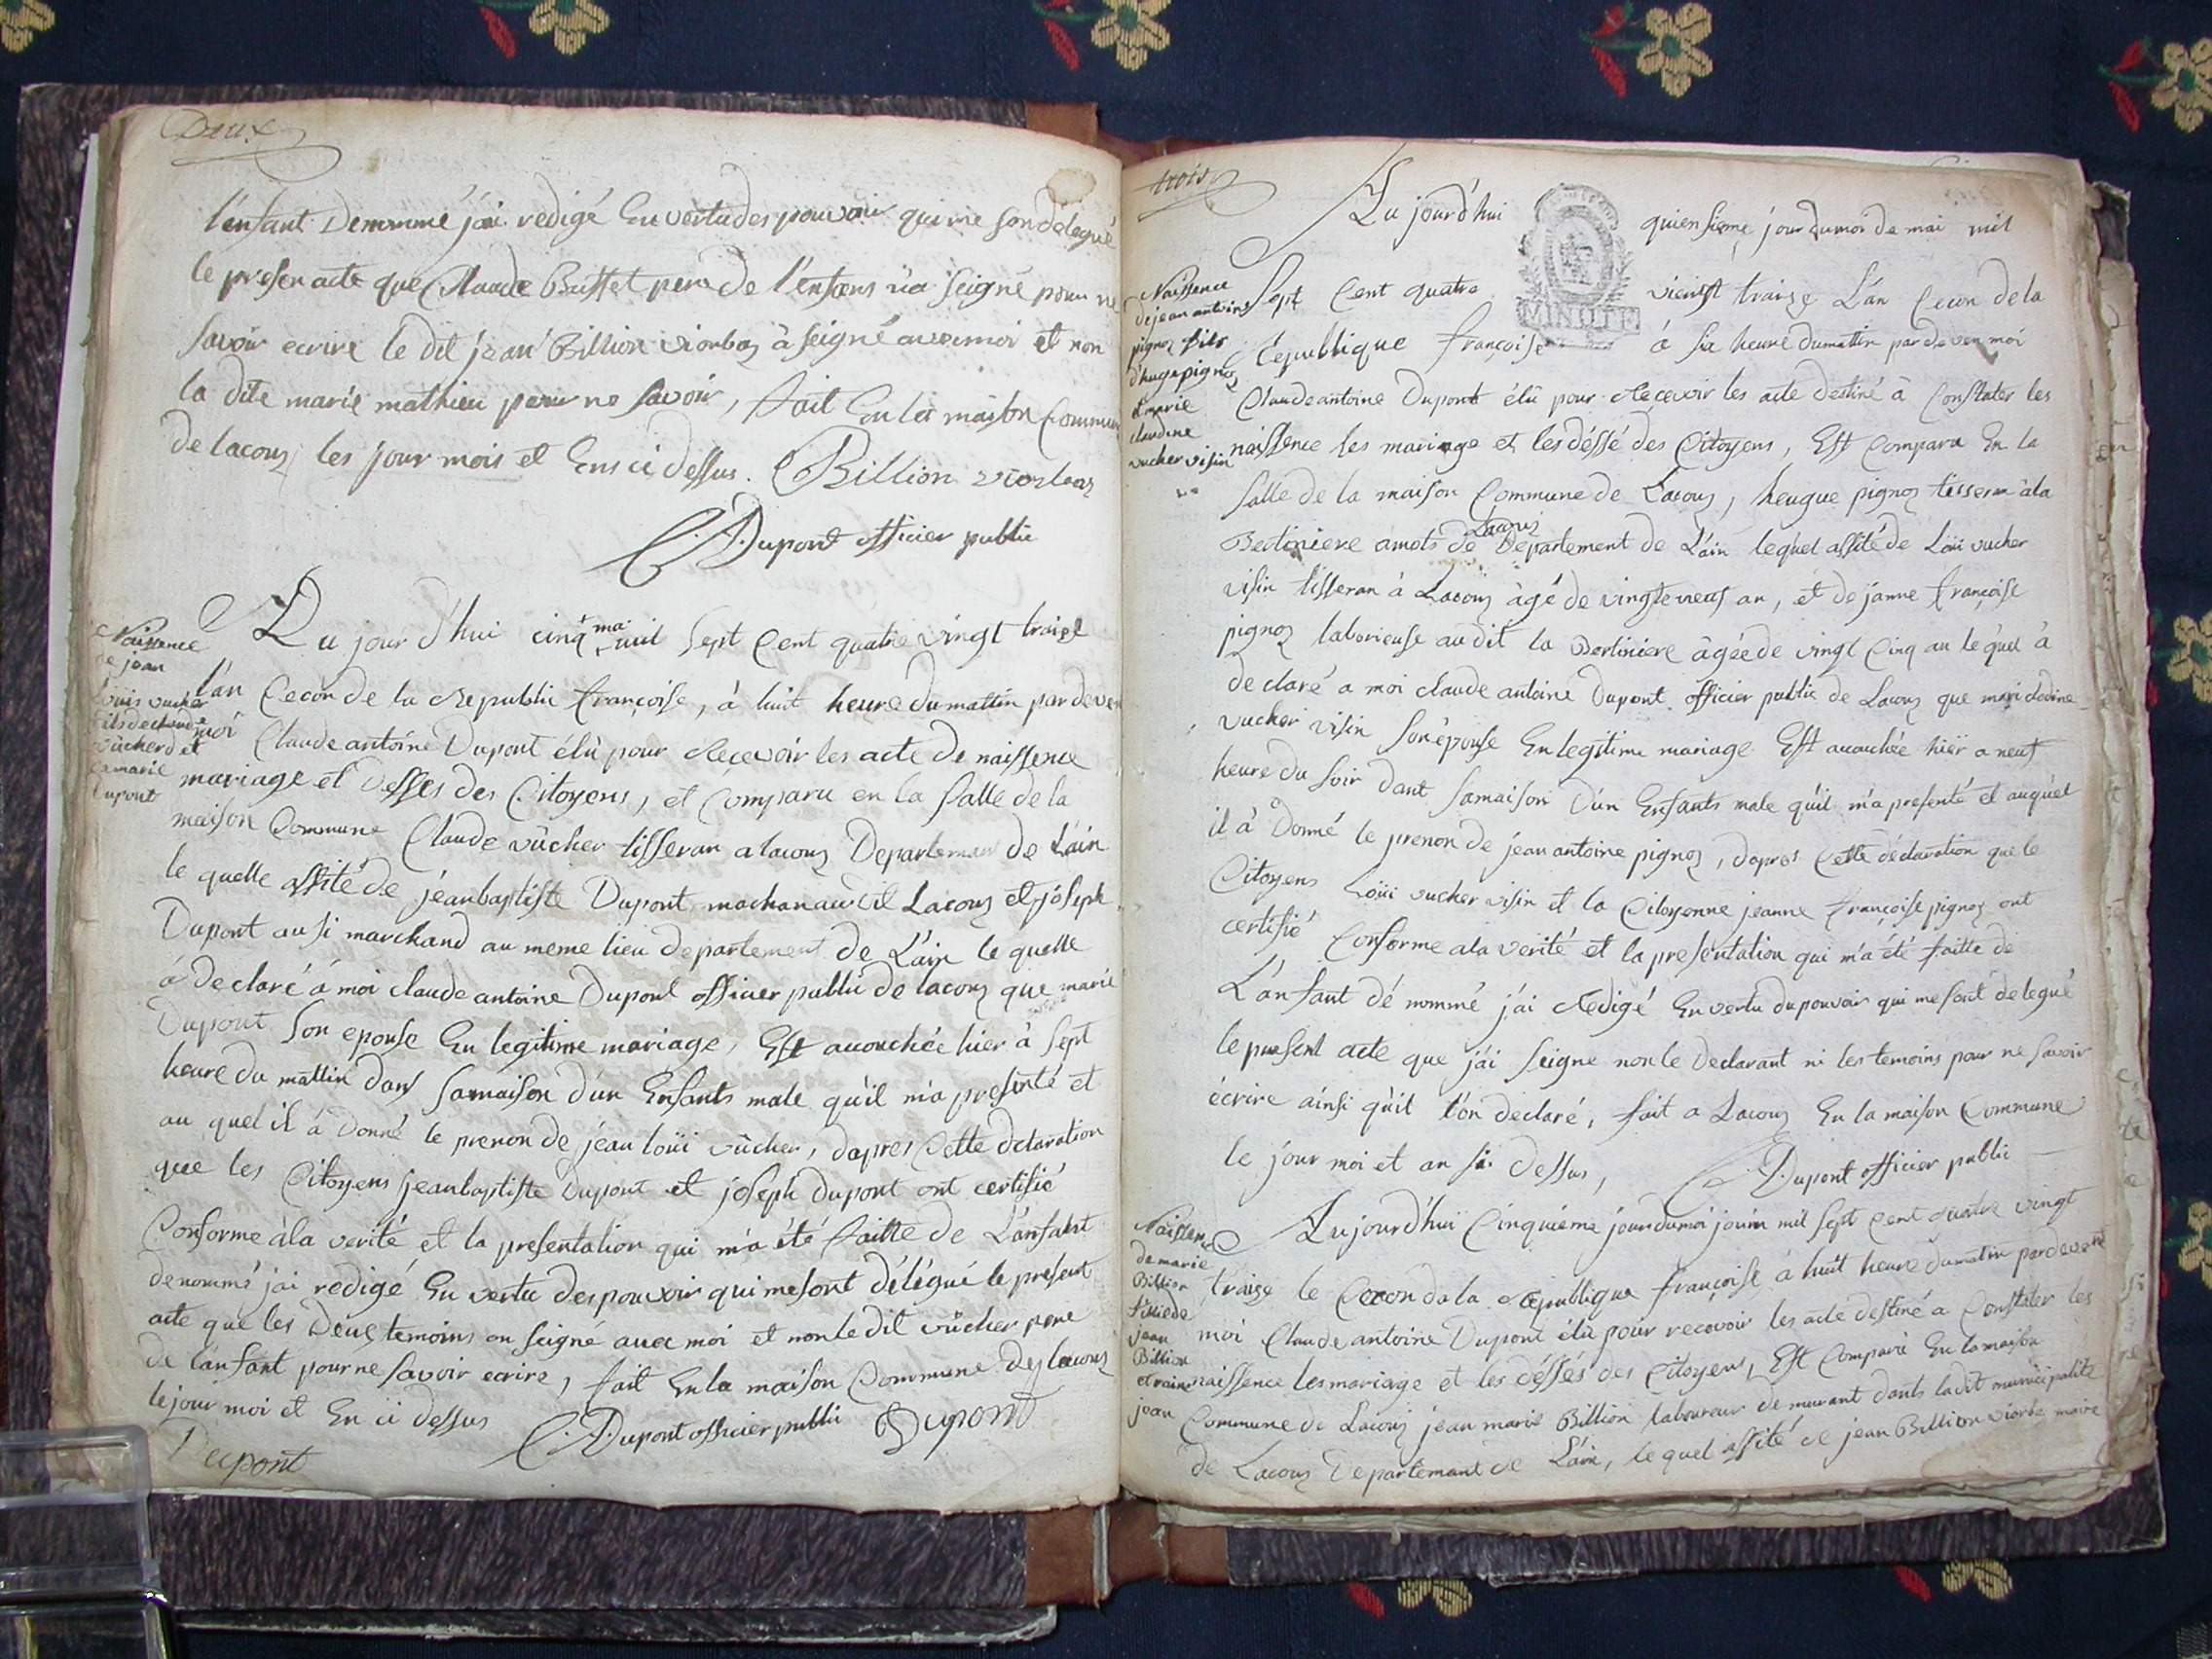 Deux
l'enfant denommé jai redigé En vertu des pouvoir qui me son delegué
le presen acte que Claude Buffet pere de l'enfans n'a seigné pour ne
savoir ecrire le dit jean Billion viorbaz à seigné avec moi et non
la dite marie mathieu pour ne savoir, fait En la maison Commune
de lacouz les jour mois et Ens ci dessus. Billion viorbaz
C. A. Dupont officier public
Naissence
de jean
Louis vucher
fils de claude
vûcherd et
de marie
Dupont
Au jour d'hui cinq mai mil sept Cent quatre vingt traize
l'an Cecon de la Republic françoise, à huit heure du mattin par deven
moi Claude antoine Dupont élû pour Recevoir les acte de naissence
mariage et desses des Citoyens, et Comparu en la salle de la
maison Commune Claude vûcher tisseran a lacouz Departeman de Lain
le quelle assité de jeanbaptiste Dupont machan audit Lacouz et joseph
Dupont ausi marchand au meme lieu departement de L'ain le quelle
à declaré à moi claude antoine Dupont officier public de lacouz que marie
Dupont son epouse En legitime mariage, Est acouchée hier à sept
heure du mattin dans samaison d'un Enfants male qu'il m'a presenté et
au quel il à donné le prenon de jean loüi vûcher, dapres Cette declaration
que les Citoyens jeanbaptiste Dupont et joseph dupont ont certifié
Conforme àla verité et la presentation qui m'a été faitte de L'anfant
denommé jai redigé En vertu des pouvoir qui me sont délégué le present
acte que les deux temoins on seigné avec moi et non le dit vûcher pere
de l'anfant pour ne savoir ecrire, fait En la maison Commune de lacouz
le jour moi et En ci dessus C. A. Dupont officier public Dupont
Dupont
trois
Au jourd'hui quiensieme jour du moi de mai mil
Naissence
de jean antoine
pignoz fils
d'huge pignoz
et marie
claudine
vucher visin
MINUTE
sept Cent quatre vienst traize L'an Cecon de la
République françoise à six heure du mattin par deven moi
Claude antoine Dupont élû pour Recevoir les acte destiné à Constater les
naissence les mariage et les déssé des Citoyens, Est Comparu En la
salle de la maison Commune de Lacouz, heugue pignoz tisseran àla
Bertiniere amots de Lacouz Departement de L'ain lequel assité de Loüi vucher
visin tisseran à Lacouz àgé de vingt neuf an, et de janne françoise
pignoz laborieuse au dit la Bertiniere âgée de vingt Cinq an le quel à
declaré a moi claude antoine Dupont officier public de Lacouz que mari clodine
vucher visin son épouse En legitime mariage Est acouchée hiër a neuf
heure du soir dant samaison d'un Enfants male qu'il m'a presenté et auquel
il à Donné le prenon de jean antoine pignoz, dapres Cette déclaration que le
Citoyens Loüi vucher visin et la Citoyenne jeanne françoise pignoz ont
certifié Conforme ala verité et la presentation qui m'a été faitte de
L'anfant dé nommé j'ai Redigé En vertu du pouvoir qui me sont delegué
le present acte que j'ai seigne non le declarant ni les temoins pour ne savoir
écrire ainsi qu'il l'on declaré, fait a Lacouz En la maison Commune
le jour moi et an si dessus, C. A. Dupont officier public
Naissence
de marie
Billion
fille de
jean
Billion
et
jean
Aujourd'hui Cinquiéme jour du moi jouin mil sept Cent quatre vingt
traize le Cecon dela République françoise à huit heure du matin par devant
moi Claude antoine Dupont élû pour recevoir les acte destiné a Constater les
naissence les mariage et les déssés des Citoyens, Est Comparu En la maison
Commune de Lacouz jean marie Billion laboureur demeurant dants ladit municipalité
de Lacouz Departemant de L'ain, le quel assité de jean Billion viorba maire